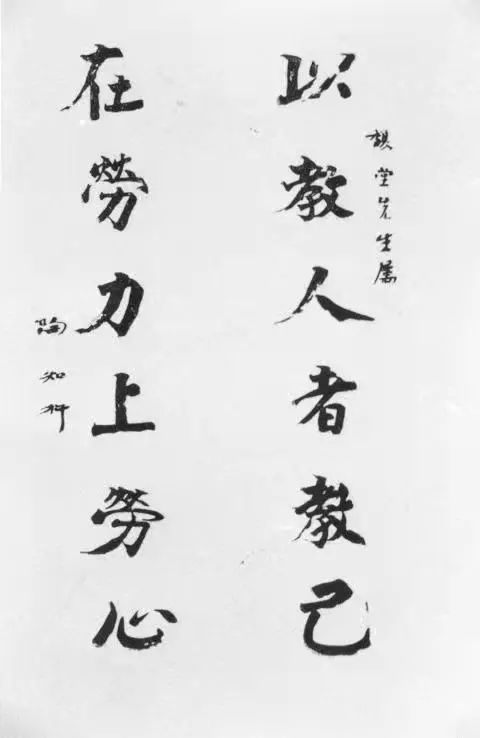 堂先生屬
以教人者教己
在勞力上勞心
陶知行